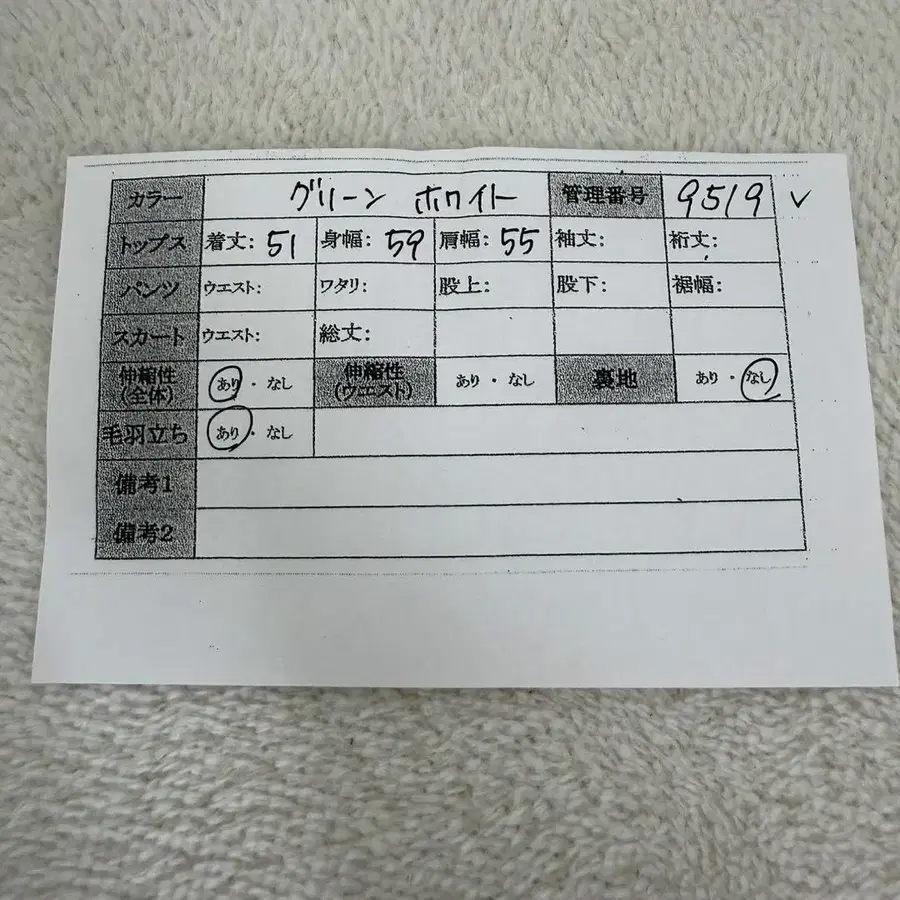 カラー グリーン ホワイト 管理番号 9519 ✓
トップス 着丈: 51 身幅: 59 肩幅: 55 袖丈: 裄丈:
パンツ ウエスト: ワタリ: 股上: 股下: 裾幅:
スカート ウエスト: 総丈:
伸縮性(全体) あり・なし 伸縮性(ウエスト) あり・なし 裏地 あり・なし
毛羽立ち あり・なし
備考1
備考2